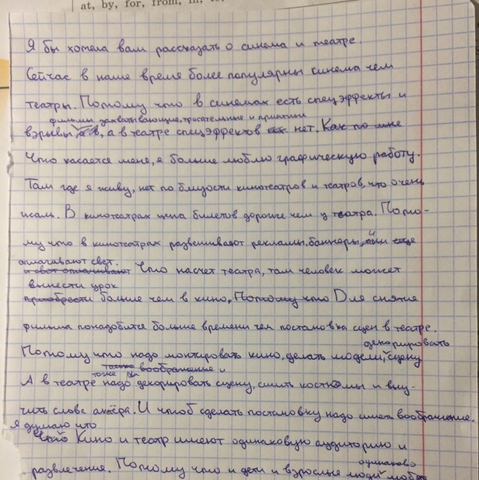 at, by, for, from, in,
Я бы хотела вам рассказать о синема и театре.
Сейчас в наше время более популярны синема чем
театры. Потому что в синемах есть спецэффекты и
фильмы захватывающие, трогательные и
взрывы, а в театре спецэффектов нет. Как по мне
Что касается меня, я больше люблю графическую работу.
Там где я живу, нет по близости кинотеатров и театров, что очень
В кинотеатрах цена билетов дороже чем у театра. Пото-
му что в кинотеатрах развешивают рекламы, баннеры, и еще
оплачивают свет.
Что насчет театра, там человек может
вынести урок
приобрести больше чем в кино. Потому что Для снятия
фильма понадобится больше времени чем постановка сцен в театре.
декорировать
Потому что надо монтировать кино, делать модели, сцену
тоже
А в театре надо декорировать сцену, сшить костюмы и выу-
чить слова актёра. И чтоб сделать постановку надо воображение.
я думаю что
Кино и театр имеют одинаковую аудиторию и
одинаково
развлечение. Потому что и дети и взрослые люди